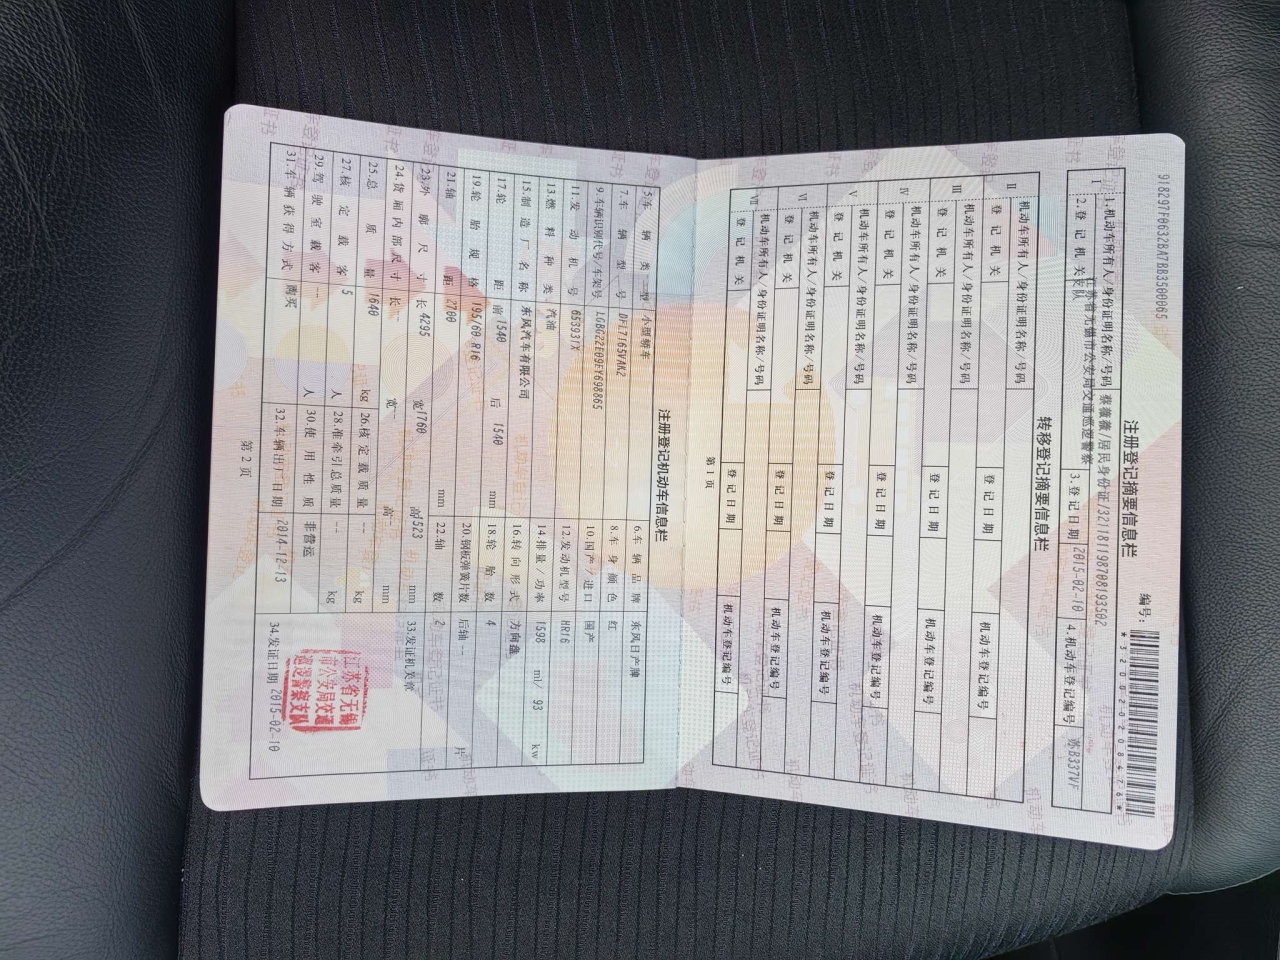 918297F0632BA7BB3500065
编号:
注册登记摘要信息栏
Ⅰ
1.机动车所有人/身份证明名称/号码 蔡薇薇/居民身份证/321181198708193502
2.登记机关 江苏省无锡市公安局交通巡逻警察支队 3.登记日期 2015-02-10 4.机动车登记编号 苏B337VF
转移登记摘要信息栏
Ⅱ 机动车所有人/身份证明名称/号码
登记机关 登记日期 机动车登记编号
Ⅲ 机动车所有人/身份证明名称/号码
登记机关 登记日期 机动车登记编号
Ⅳ 机动车所有人/身份证明名称/号码
登记机关 登记日期 机动车登记编号
Ⅴ 机动车所有人/身份证明名称/号码
登记机关 登记日期 机动车登记编号
Ⅵ 机动车所有人/身份证明名称/号码
登记机关 登记日期 机动车登记编号
Ⅶ 机动车所有人/身份证明名称/号码
登记机关 登记日期 机动车登记编号
第1页
注册登记机动车信息栏
5.车辆类型 小型轿车 6.车辆品牌 东风日产牌
7.车辆型号 DFL7165VAK2 8.车身颜色 红
9.车辆识别代号/车架号 LGBG22E09EY698865 10.国产/进口 国产
11.发动机号 653931X 12.发动机型号 HR16
13.燃料种类 汽油 14.排量/功率 1598 ml/ 93 kw
15.制造厂名称 东风汽车有限公司 16.转向形式 方向盘
17.轮距 前 1540 后 1540 mm 18.轮胎数 4
19.轮胎规格 195/60 R16 20.钢板弹簧片数 后轴 -- 片
21.轴距 2700 mm 22.轴数 2
23.外廓尺寸 长 4295 宽 1760 高 1523 mm 33.发证机关章
24.货厢内部尺寸 长 -- 宽 -- 高 -- mm
25.总质量 1640 kg 26.核定载质量 -- kg
27.核定载客 5 人 28.准牵引总质量 -- kg
29.驾驶室载客 -- 人 30.使用性质 非营运
31.车辆获得方式 购买 32.车辆出厂日期 2014-12-13 34.发证日期 2015-02-10
江苏省无锡
市公安局交通
巡逻警察支队
第2页